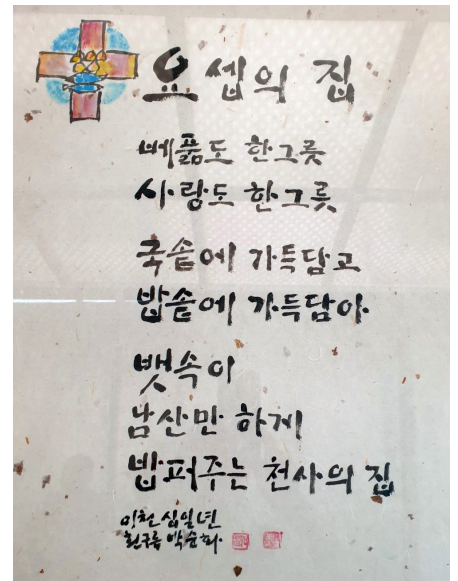 요셉의 집
베풂도 한그릇
사랑도 한그릇
국솥에 가득담고
밥솥에 가득담아
뱃속이
남산만 하게
밥퍼주는 천사의 집
이천 십일년
박순화